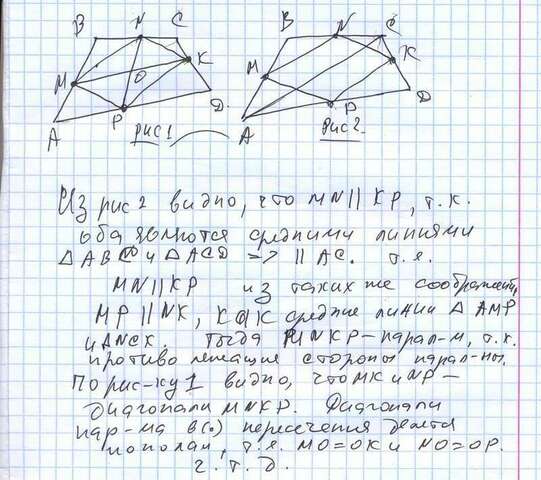 B N C
M K
O
A P D.
рис 1
B N C
M K
A P D
рис 2.
Из рис 2 видно, что MN || KP, т.к.
оба являются средними линиями
△ ABC и △ ACD => || AC. т.е.
MN || KP из таких же соображен.
MP || NK, как средние линии △ AMP
и △NCK. Тогда MNKP – парал-м, т.к.
противолежащие стороны парал-ны.
По рис-ку 1 видно, что MK и NP –
диагонали MNKP. Диагонали
пар-ма в (.) пересечения делятся
пополам, т.е. MO = OK и NO = OP.
ч. т. д.